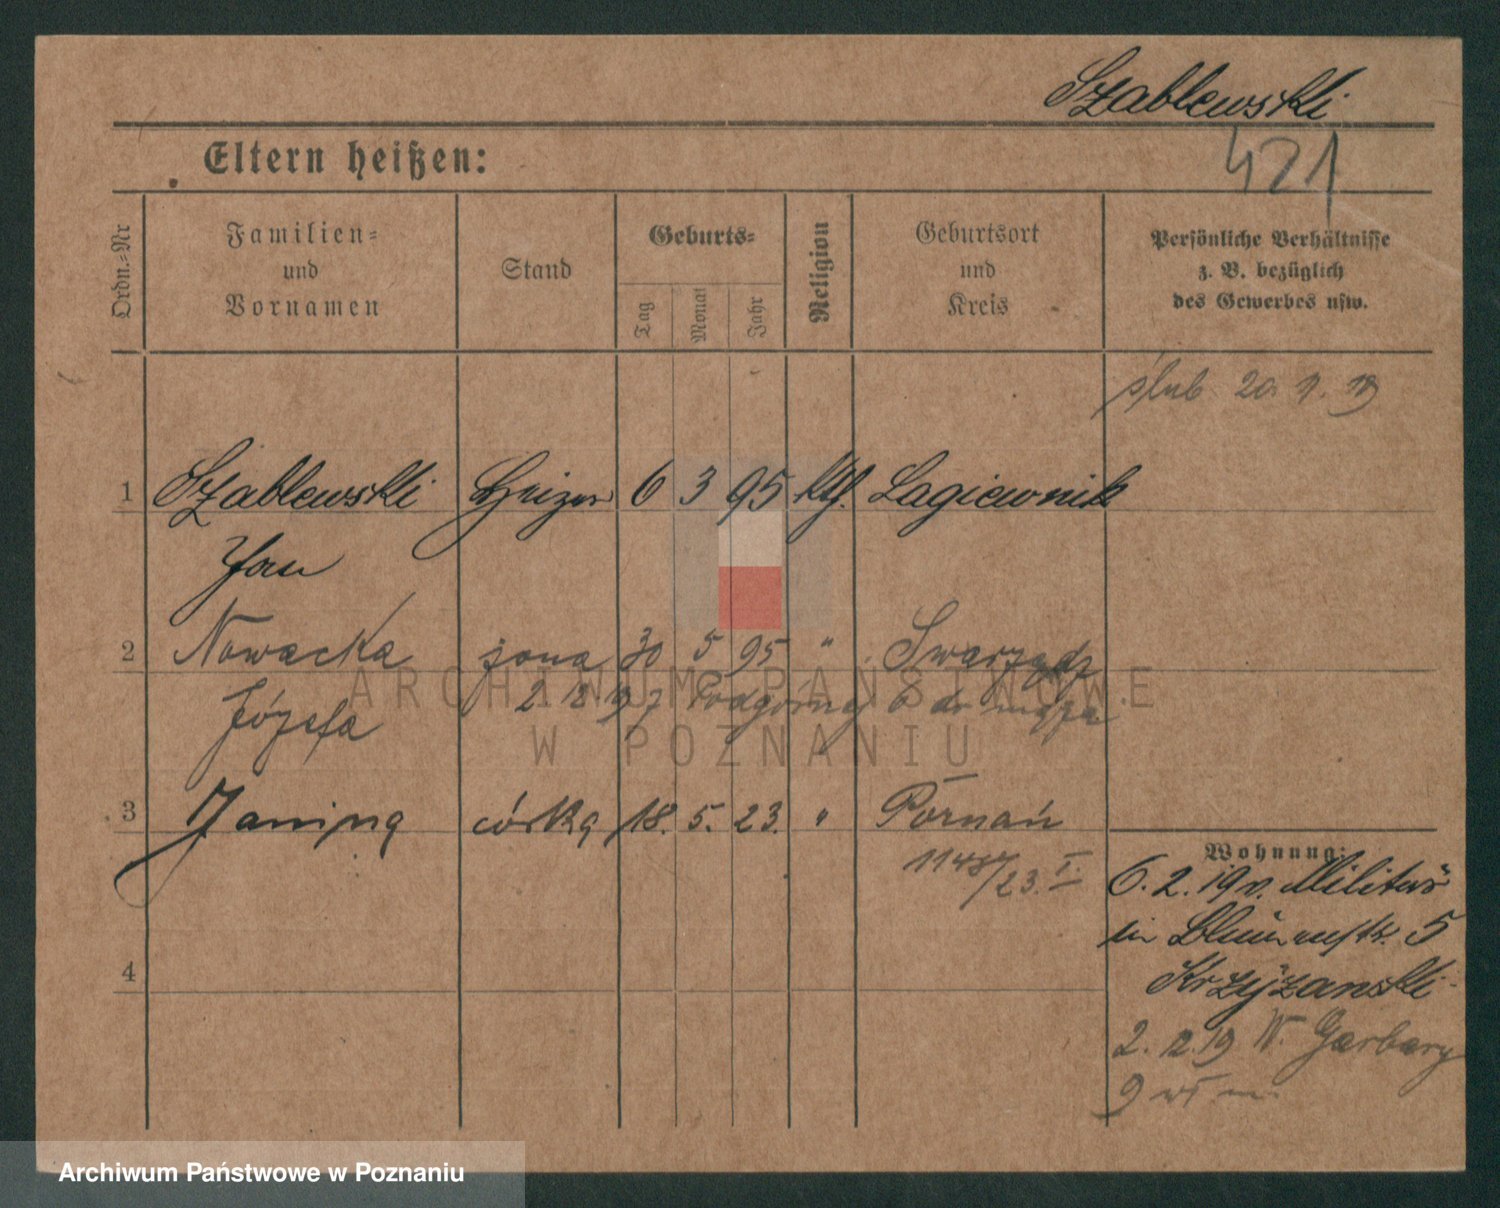 Szablewski
421
Eltern heißen:
Ordn.-Nr
Familien- und Vornamen
Stand
Geburts-
Tag
Monat
Jahr
Religion
Geburtsort und Kreis
Persönliche Verhältnisse
z. B. bezüglich
des Gewerbes usw.
ślub 20. 1. 19
1 Szablewski Heizer 6 3 95 kth. Lagiewnik
Jan
2 Nowacka żona 30 5 95 " Swarzędz
Józefa 2 12 19 z Podgórnej 6 do męża
3 Janina córka 18. 5. 23. " Poznań
1148/23. I.
Wohnung:
6. 2. 19 v. Militär
in Blumenstr. 5
Krzyżanski
2. 12. 19 W. Garbary
9
4
ARCHIWUM PAŃSTWOWE
W POZNANIU
Archiwum Państwowe w Poznaniu